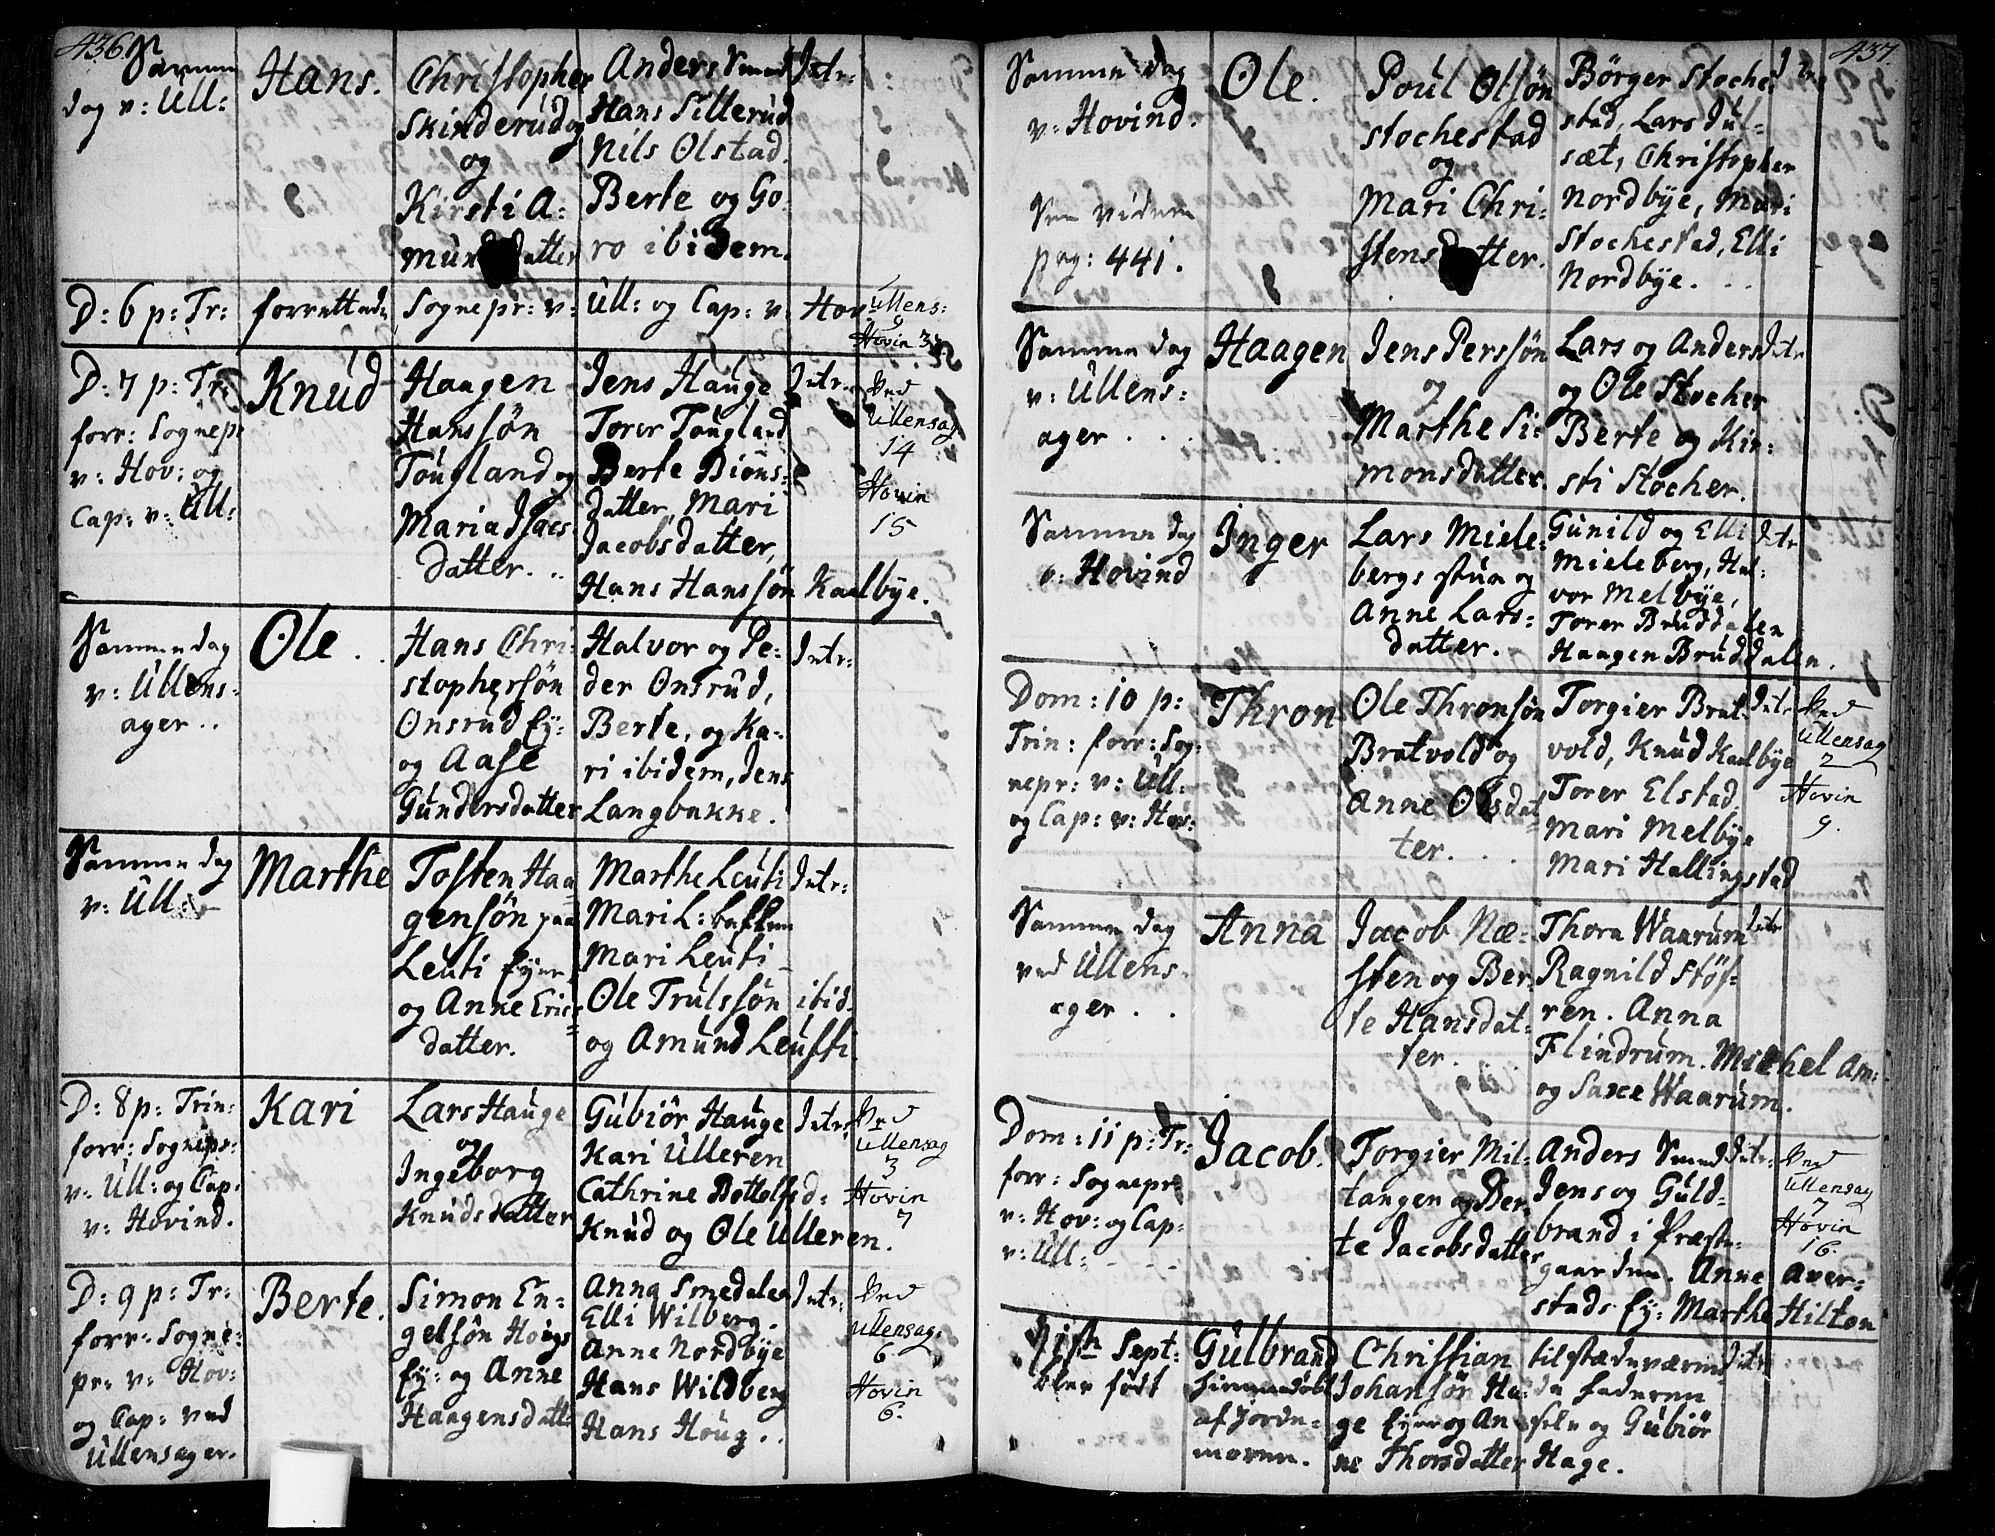 436.
Samme
dag v: Ull:
Hans.
Christopher
Skinderud og
og
Kirsti A:
munds datter
Anders Smed
Hans Sillerud
Nils Olstad.
Berte og Go:
ro ibidem.
Intr:
D: 6 p: Tr:
forrettede
Sognepr: v:
Ull: og Cap: v:
Hov:
Ullens:
9
Hovin 3.
D: 7 p: Tr:
forr: Sognepr
v: Hov: og
Cap: v: Ull:
Knud
Haagen
Hanssön
Tougland og
Maria Isacs
datter. ..
Jens Hauge
Torer Tougland
Berte Biöns:
datter, Mari
Jacobsdatter,
Hans Hanssön Kaalbye.
Intr.
Ved
Ullensag
14
Hovin
15
Samme dag
v: Ullens:
ager ..
Ole ..
Hans Chri:
stophersön
Onsrud Ey:
og Aase
Gundersdatter
Halvor og Pe:
der Onsrud,
Berte, og Ka:
ri ibidem, Jens
Langbakke.
Intr:
Samme dag
v: Ull:
Marthe
Tosten Haa
gensön paa
Leuti Eyer
og Anne Erics
datter.
Marthe Leuti
Mari L: bakken
Mari Leuti
Ole Trulssön ibid.
og Amund Leuti.
Intr:
D: 8 p: Trin:
forr: Sognepr:
v: Ull: og Cap:
v: Hovind.
Kari
Lars Hauge
og
Ingeborg
Knudsdatter
Gubiör Hauge
Kari Ulleren
Cathrine Bottolfsd:
Knud og Ole Ulleren.
Intr:
Ved
Ullensag
3
Hovin
7
D: 9 p: Tr:
forr: Sogne:
pr: v: Hov:
og Cap: ved
Ullensager.
Berte.
Simon En:
gelsön Hougs
Ey: og Anne
Haagensdatt:
Anna Smedalen
Elli Wilberg.
Anne Nordbye
Hans Wildberg
Hans Houg ..
Intr:
Ved
Ullensag:
6
Hovin
6.
437.
Samme dag
v: Hovind.
See videre
pag: 441.
Ole.
Poul Olsön
Stochestad
og
Mari Chri:
stensdatter.
Börger Stoche:
stad, Lars Jul:
sæt, Christopher
Nordbye, Mari
Stochestad, Elli
Nordbye. ..
Intr
Samme dag
v: Ullens:
ager ...
Haagen
Jens Perssön
og
Marthe Si:
monsdatter.
Lars og Anders
og Ole Stocher
Berte og Kir:
sti Stocher.
Intr
Samme dag
v: Hovind
Inger
Lars Miele:
bergs stua og
Anne Lars:
datter.
Gunild og Elli
Mieleberg, Hal:
vor Melbye,
Torer Bruddalen
Haagen Bruddalen.
Intr
Dom: 10 p:
Trin: forr: Sog:
nepr: v: Ull:
og Cap: v: Hov:
Thron
Ole Thronsön
Bratvold og
Anne Olsdat
ter. ..
Torgier Brat
vold, Knud Kaalbye
Torer Elstad,
Mari Melbye
Mari Hallingstad
Intr
Ved
Ullensag
7
Hovin
9.
Samme dag
ved Ullens:
ager ..
Anna
Jacob Næ:
sten og Ber:
te Hansdat:
ter.
Thora Waarum
Ragnild Stöf:
ren. Anna
Flindrum. Michel Am:
og Saxe Waarum.
Intr
Dom: 11 p: Tr:
forr: Sognepr
v: Hov: og Cap:
v: Ull: ...
Jacob.
Torgier Mil:
tangen og Ber:
te Jacobsdatter
Anders Smed
Jens og Guld:
brand i Præste:
gaarden. Anne Aver:
stads Ey: Marthe Hilton
Intr:
Ved
Ullensag
7
Hovin
16.
Sept:
blev född
Gulbrand
hiemmedöbt
af Jorde:
moren.
Christian
Johansön Ha:
ge Eyer og An:
ne Thorsdatter
tilstædeværen
de faderen
selv og Gubiör
Hage.
Intr